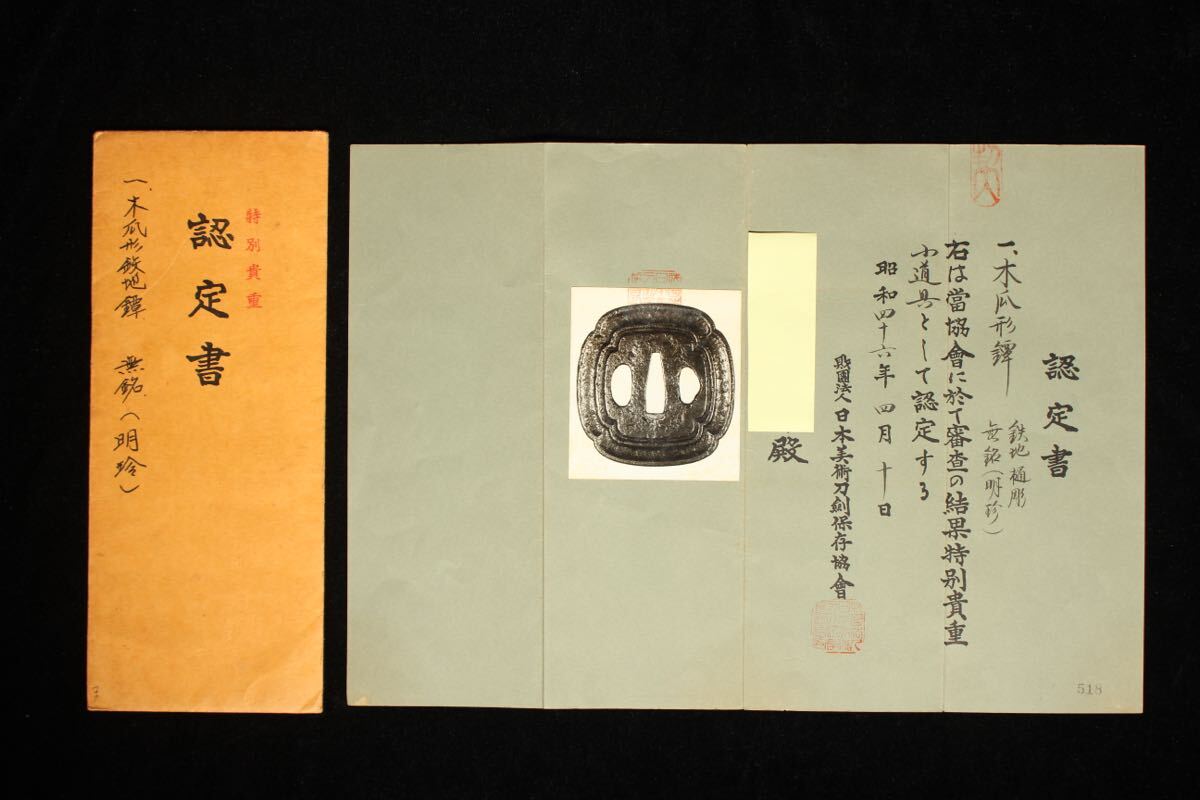 特別貴重
認定書
一、木瓜形鉄地鐔 無銘（明珍）
認定書
一、木瓜形鐔
鉄地 樋彫
無銘（明珍）
右は當協會に於て審査の結果特別貴重
小道具として認定する
昭和四十六年 四月 十日
財團法人日本美術刀劍保存協會
殿
518